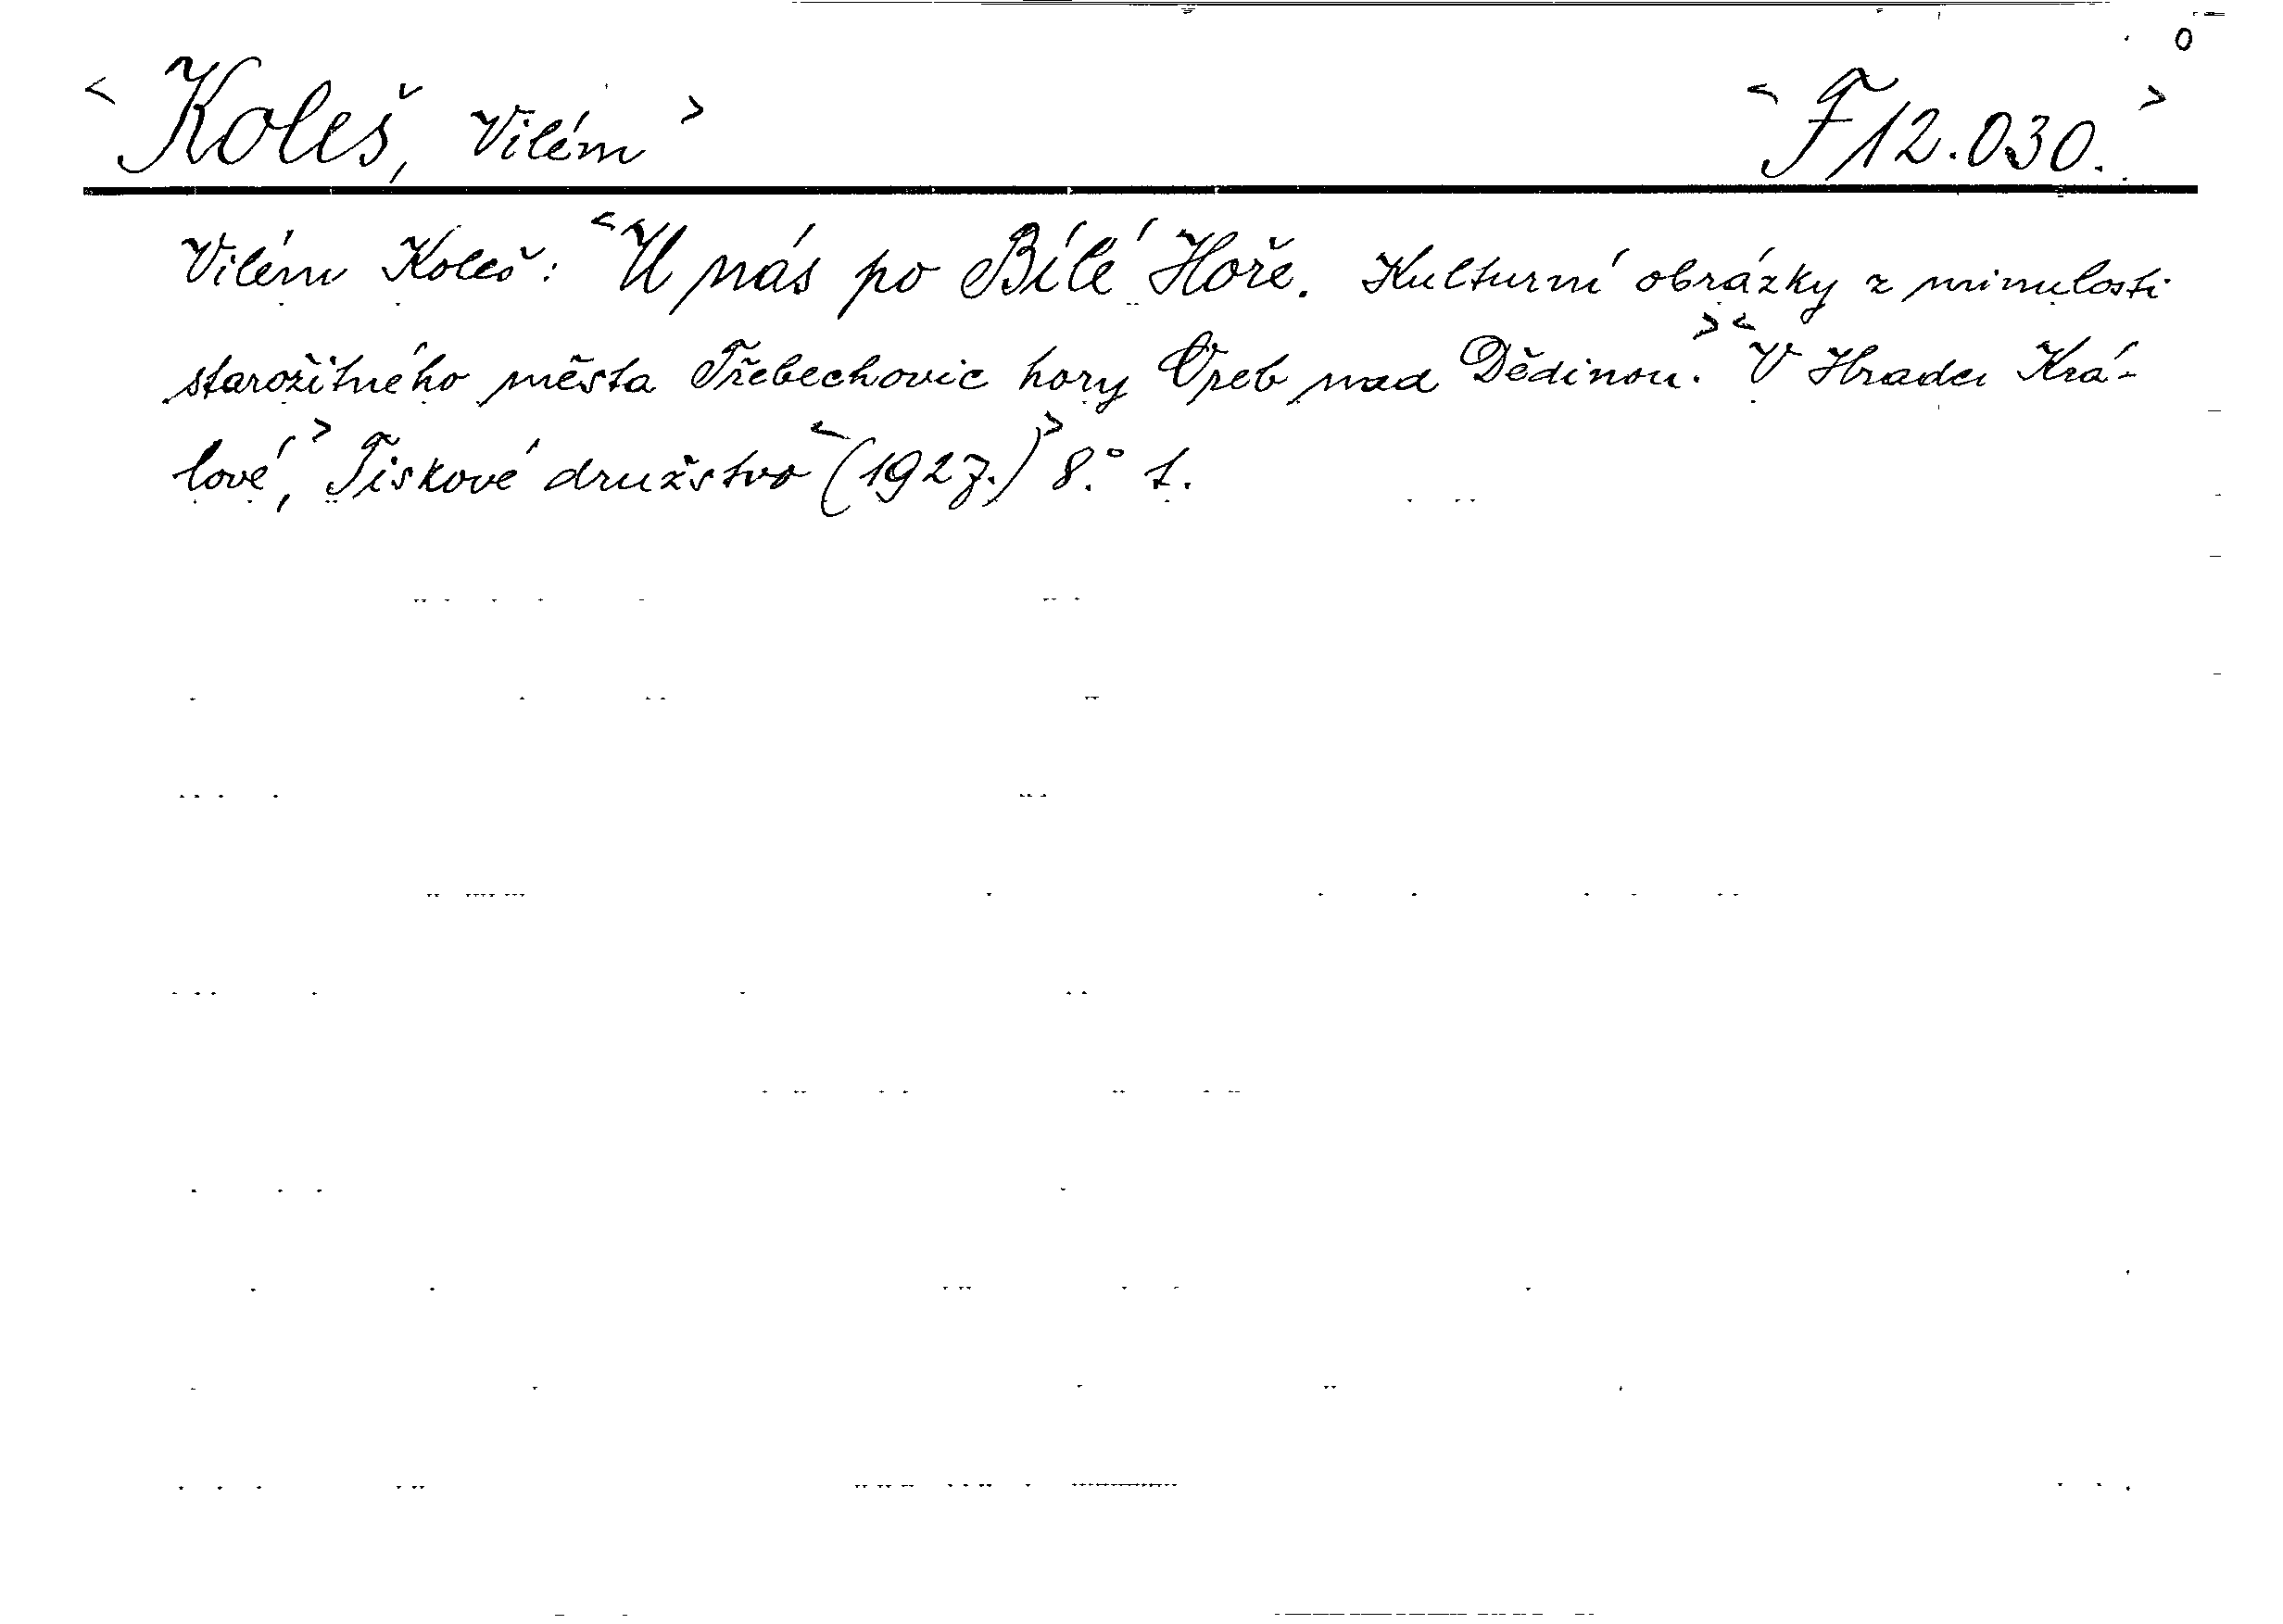 < Koleš, Vilém > < F 12.030. >
Vilém Koleš: < U nás po Bílé Hoře. Kulturní obrázky z minulosti
starožitného města Třebechovic hory Oreb nad Dědinou. > < V Hradci Krá-
lové, > Tiskové družstvo < (1927.) > 8.° 1.